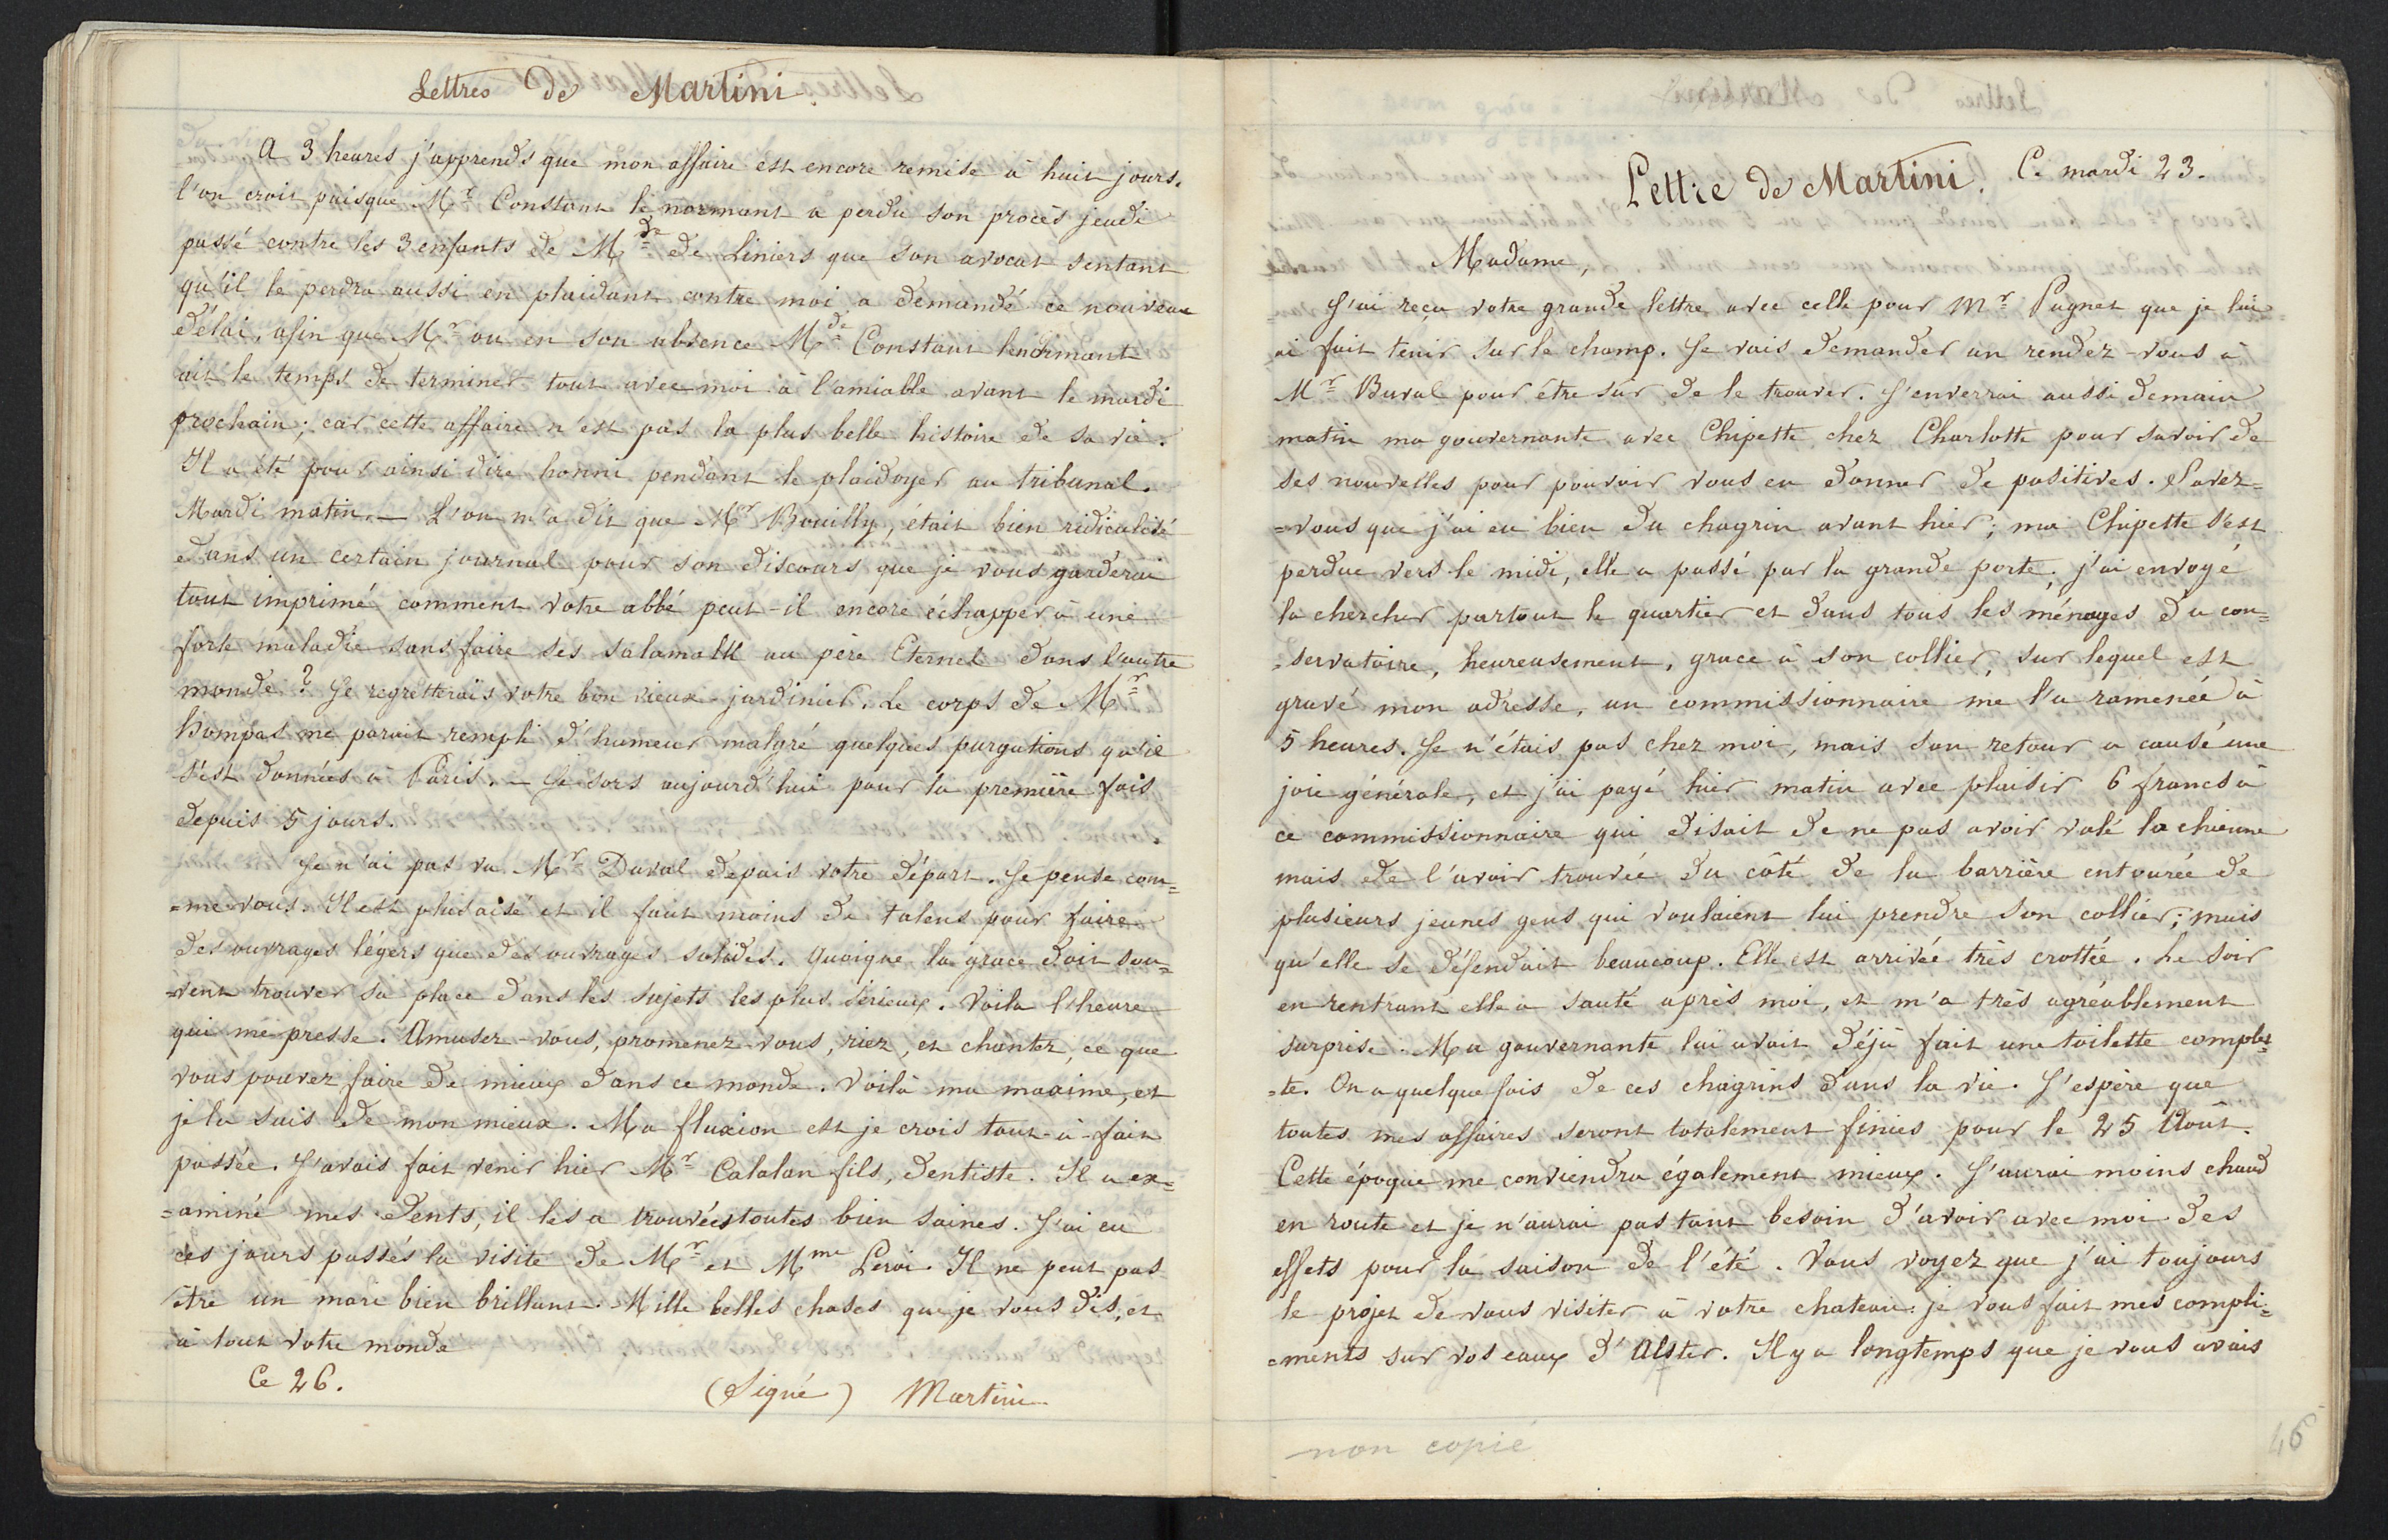 Lettres de Martini.
A 3 heures j'apprends que mon affaire est encore remise à huit jours.
l'on croit puisque Mr Constant le normant a perdu son procès jeudi
passé contre les 3 enfants de Mde de Liniers que son avocat sentant
qu'il le perdra aussi en plaidant contre moi a demandé ce nouveau
délai, afin que Mr ou en son absence Mde Constant lenormant
ait le temps de terminer tout avec moi à l'amiable avant le mardi
prochain; car cette affaire n'est pas la plus belle histoire de sa vie.
Il a été pour ainsi dire honni pendant le plaidoyer au tribunal.
Mardi matin. — L'on m'a dit que Mr Bouilly, était bien ridiculisé
dans un certain journal pour son discours que je vous garderai
tout imprimé comment votre abbé peut-il encore échapper à une
forte maladie sans faire ses salamalk au père Eternel dans l'autre
monde? Je regretterais votre bon vieux jardinier. Le corps de Mr
Bompas me parait rempli d'humeur malgré quelques purgations qu'il
s'est données à Paris. — Je sors aujourd'hui pour la première fois
depuis 5 jours.
Je n'ai pas vu Mr Duval depuis votre départ. Je pense com=
=me vous. Il est plus aisé et il faut moins de talens pour faire
des ouvrages légers que des ouvrages solides. Quoique la grace doit sou=
=vent trouver sa place dans les sujets les plus sérieux. Voila l'heure
qui me presse. Amusez-vous, promenez-vous, riez, et chantez, ce que
vous pouvez faire de mieux dans ce monde. Voilà ma maxime, et
je la suis de mon mieux. Ma fluxion est je crois tout-à-fait
passée. J'avais fait venir hier Mr Catalan fils, dentiste. Il a ex=
=aminé mes dents, il les a trouvées toutes bien saines. J'ai eu
ces jours passés la visite de Mr et Mme Leroi. Il ne peut pas
être un mari bien brillant. Mille belles choses que je vous dis, et
à tout votre monde
Ce 26.
(Signé) Martini
Lettre de Martini. Ce mardi 23.
Madame,
J'ai reçu votre grande lettre avec celle pour Mr Pugnet que je lui
ai fait tenir sur le champ. Je vais demander un rendez-vous à
Mr Buval pour être sûr de le trouver. J'enverrai aussi demain
matin ma gouvernante avec Chipette chez Charlotte pour savoir de
ses nouvelles pour pouvoir vous en donner de positives. Savez=
=vous que j'ai eu bien du chagrin avant hier; ma Chipette s'est
perdue vers le midi, elle a passé par la grande porte; j'ai envoyé
la chercher partout le quartier et dans tous les ménages du con=
=servatoire, heureusement, grace à son collier, sur lequel est
gravé mon adresse, un commissionnaire me l'a ramenée à
5 heures. Je n'étais pas chez moi, mais son retour a causé une
joie générale, et j'ai payé hier matin avec plaisir 6 francs à
ce commissionnaire qui disait de ne pas avoir volé la chienne
mais de l'avoir trouvée du côté de la barrière entourée de
plusieurs jeunes gens qui voulaient lui prendre son collier; mais
qu'elle se défendait beaucoup. Elle est arrivée très crottée. Le soir
en rentrant elle a sauté après moi, et m'a très agréablement
surprise. Ma gouvernante lui avait déjà fait une toilette complet=
=te. On a quelquefois de ces chagrins dans la vie. J'espère que
toutes mes affaires seront totalement finies pour le 25 Août.
Cette époque me conviendra également mieux. J'aurai moins chaud
en route et je n'aurai pas tant besoin d'avoir avec moi des
effets pour la saison de l'été. Vous voyez que j'ai toujours
le projet de vous visiter à votre chateau: je vous fait mes compli=
=ments sur vos eaux d'Alster. Il y a longtemps que je vous avais
non copié
46